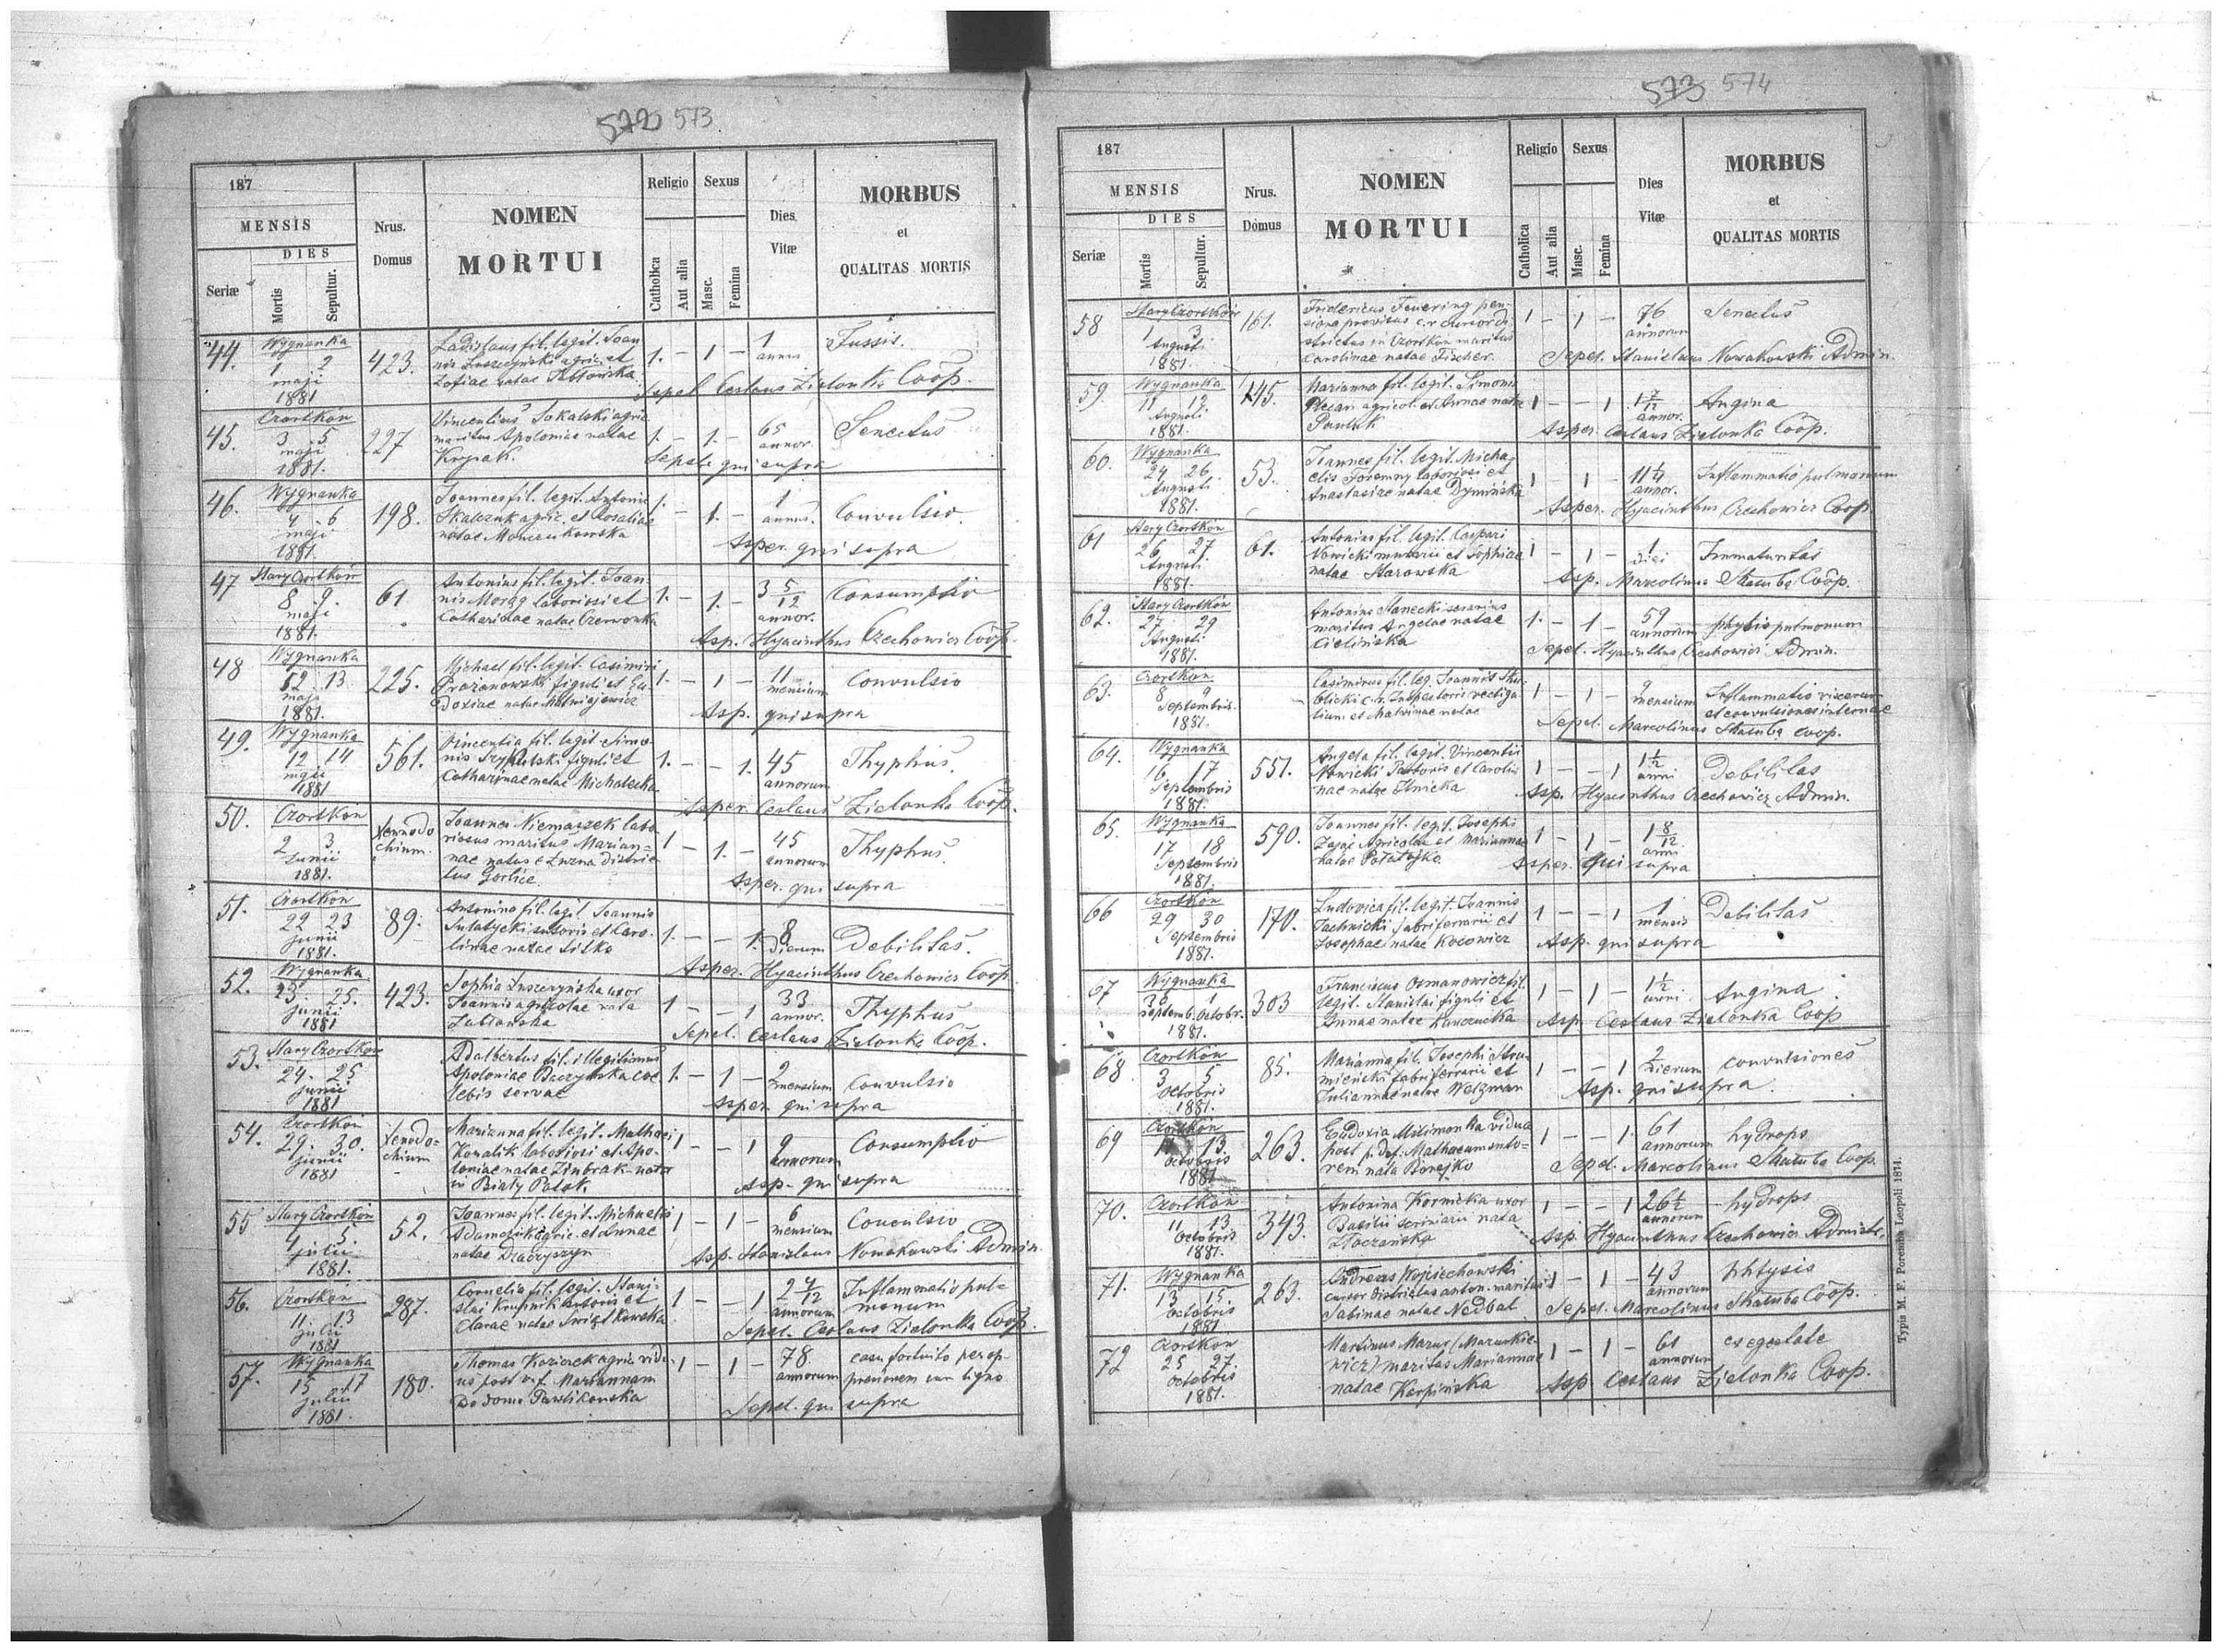 572 573
187
MENSIS
DIES
Seriæ
Mortis
Sepultur.
Nrus.
Domus
NOMEN
MORTUI
Religio
Sexus
Catholica
Aut alia
Masc.
Femina
Dies
Vitæ
MORBUS
et
QUALITAS MORTIS
44. Wygnanka
1 2
maji
1881
423.
Ladislaus fil. legit. Joan
nis agric. et
Zofiae natae
1. - 1 - 1
annus
Tussis.
Sepel. Ceslaus Zielonka Coop.
45. Czortkow
3 5
maji
1881.
227
Vincentius Sokalski agric.
maritus Apoloniae natae
1. - 1. - 65
annor.
Senectus
Sepel. qui supra
46. Wygnanka
4 6
maji
1881.
198.
Joannes fil. legit. Antonii
Skalczuk agric. et Rosaliae
natae
1. - 1. - 1
annus.
Convulsio.
Asper. qui supra
47 Stary Czortkow
8 9.
maji
1881.
61
Antonius fil. legit. Joan-
nis laboriosi et
Catharinae natae Czerwonka
1. - 1. - 3 5/12
annor.
Consumptio
Asp. Hyacinthus Czechowicz Coop.
48 Wygnanka
12 13
maji
1881.
225.
Michael fil. legit. Casimiri
figuli et Eu
doxiae natae
1. - 1 - 11
mensium
Convulsio
Asp. qui supra
49. Wygnanka
12 14
maji
1881
561.
Vincentia fil. legit. Simo-
nis figuli et
Catharinae natae Michalecka
1. - - 1. 45
annorum
Thyphus.
Asper. Ceslaus Zielonka Coop.
50. Czortkow
2 3
Junii
1881.
Xenodo
chium.
Joannes Niemaszek labo-
riosus maritus Marian=
nae natus e Luzna distric
tus Gorlice.
1 - 1. - 45
annorum
Thyphus.
Asper. qui supra
51. Czortkow
22 23
Junii
1881.
89.
Antonina fil. legit. Joannis
Sulatycki sutoris et Caro-
linae natae
1. - - 1. 8
Dierum
Debilitas.
Asper. Hyacinthus Czechowicz Coop.
52. Wygnanka
23. 25.
Junii
1881
423.
Sophia uxor
Joannis agricolae nata
1 - - 1 33
annor.
Thyphus
Sepel. Ceslaus Zielonka Coop.
53. Stary Czortkow
24. 25
Junii
1881
Adalbertus fil. illegitimus
Apoloniae Baczynska coe
lebis servae
1. - 1 - 2
mensium
Convulsio
Asper. qui supra
54. Czortkow
29. 30.
Junii
1881
Xenodo=
chium
Marianna fil. legit. Mathaei
Kowalik laboriosi et Apo-
loniae natae nata
in Biały Potok.
1 - - 1 9
annorum
Consumptio
Asp. qui supra
55 Stary Czortkow
4 5
Julii
1881.
52.
Joannes fil. legit. Michaelis
agric. et Annae
natae
1 - 1 - 6
mensium
Convulsio
Asp. Stanislaus Nowakowski Admin.
56. Czortkow
11. 13
Julii
1881
287.
Cornelia fil. legit. Stani-
slai Krupnik sutoris et
Clarae natae Świątkowska
1 - - 1 2 4/12
annorum
Inflammatio pul-
monum
Sepel. Ceslaus Zielonka Coop.
57. Wygnanka
15 17
Julii
1881.
180.
Thomas agric. vidu-
us post p. f. Mariannam
de domo Pawlikowska
1 - 1 - 78.
annorum
casu fortuito per op-
pressionem cum ligno
Sepel. qui supra
573 574
187
MENSIS
DIES
Seriæ
Mortis
Sepultur.
Nrus.
Domus
NOMEN
MORTUI
Religio
Sexus
Catholica
Aut alia
Masc.
Femina
Dies
Vitæ
MORBUS
et
QUALITAS MORTIS
58 Stary Czortkow
1 3
Augusti
1881.
161.
Fridericus Feuering pen-
sione provisus c. r. cursor di
strictus in Czortkow maritus
Carolinae natae Fischer.
1 - 1 - 76
annorum
Senectus
Sepel. Stanislaus Nowakowski Admin.
59. Wygnanka
11 12
Augusti
1881.
145.
Marianna fil. legit. Simonis
agricol. et Annae natae
Pawluk
1 - - 1 1 7/12
annor.
Angina
Asper. Ceslaus Zielonka Coop.
60. Wygnanka
24 26
Augusti
1881.
53.
Joannes fil. legit. Micha-
elis Foremny laboriosi et
Anastasiae natae Dyminska
1 - 1 - 11 1/4
annor.
Inflammatio pulmonum
Asper. Hyacinthus Czechowicz Coop.
61 Stary Czortkow
26 27
Augusti
1881.
61.
Antonius fil. legit. Caspari
Nowicki murarii et Sophiae
natae Starowska
1 - 1 - 1
diei
Immaturitas
Asp. Marcolinus Skatuba Coop.
62. Stary Czortkow
27 29
Augusti
1881.
Antonius Stanecki serarius
maritus Angelae natae
Cielińska
1. - 1 - 59
annorum
phtysis pulmonum
Sepel. Hyacinthus Czechowicz Admin.
63. Czortkow
8 9
Septembris.
1881.
Casimirus fil. leg. Joannis Sku-
blicki c. r. Inspectoris vectiga
lium et Malvinae natae
1 - 1 - 9
mensium
Inflammatio viscerum
et convulsiones internae
Sepel. Marcolinus Skatuba Coop.
64. Wygnanka
16 17
Septembris
1881.
551.
Angela fil. legit. Vincentii
Nowicki Pastoris et Caroli-
nae natae Ilnicka
1 - - 1 1 1/2
anni
Debilitas
Asp. Hyacinthus Czechowicz Admin.
65. Wygnanka
17 18
Septembris
1881.
590.
Joannes fil. legit. Josephi
Zając Agricolae et Mariannae
natae
1 - 1 - 1 8/12
anni
Asper. qui supra
66 Czortkow
29 30
Septembris
1881.
170.
Ludovica fil. legit. Joannis
Tachnicki fabri ferrarii et
Josephae natae Kocowicz
1 - - 1 1
mensis
Debilitas
Asp. qui supra
67 Wygnanka
30 1
Septemb. Octobr.
1881.
303
Franciscus Osmanowicz fil.
legit. Stanislai figuli et
Annae natae
1 - 1 - 1 1/2
anni
Angina
Asp. Ceslaus Zielonka Coop
68 Czortkow
3 5
Octobris
1881.
85.
Marianna fil. Josephi Stru-
mieński fabri ferrarii et
Juliannae natae Welzman
1 - - 1 2
dierum
convulsiones
Asp. qui supra.
69 Czortkow
13.
Octobris
1881
263.
Eudoxia Milimonka vidua
post p. def. Mathaeum suto-
rem nata Borejko
1 - - 1. 61
annorum
hydrops
Sepel. Marcolinus Skatuba Coop.
70. Czortkow
11 13
Octobris
1881.
343.
Antonina Kornicka uxor
Basilii scriniarii nata
1 - - 1 26 1/2
annorum
hydrops
Asp. Hyacinthus Czechowicz Administr.
71. Wygnanka
13 15
Octobris
1881
263.
Andreas Wojciechowski
cursor districtus auton. maritus
Sabinae natae Niedbał
1 - 1 - 43
annorum
phtysis
Sepel. Marcolinus Skatuba Coop.
72 Czortkow
25 27.
Octobris
1881.
Martinus Mazur (Mazurkie-
wicz) maritus Mariannae
natae Karpińska
1 - 1 - 61
annorum
ex egestate
Asp. Ceslaus Zielonka Coop.
Typis M. F. Poremba Leopoli 1874.